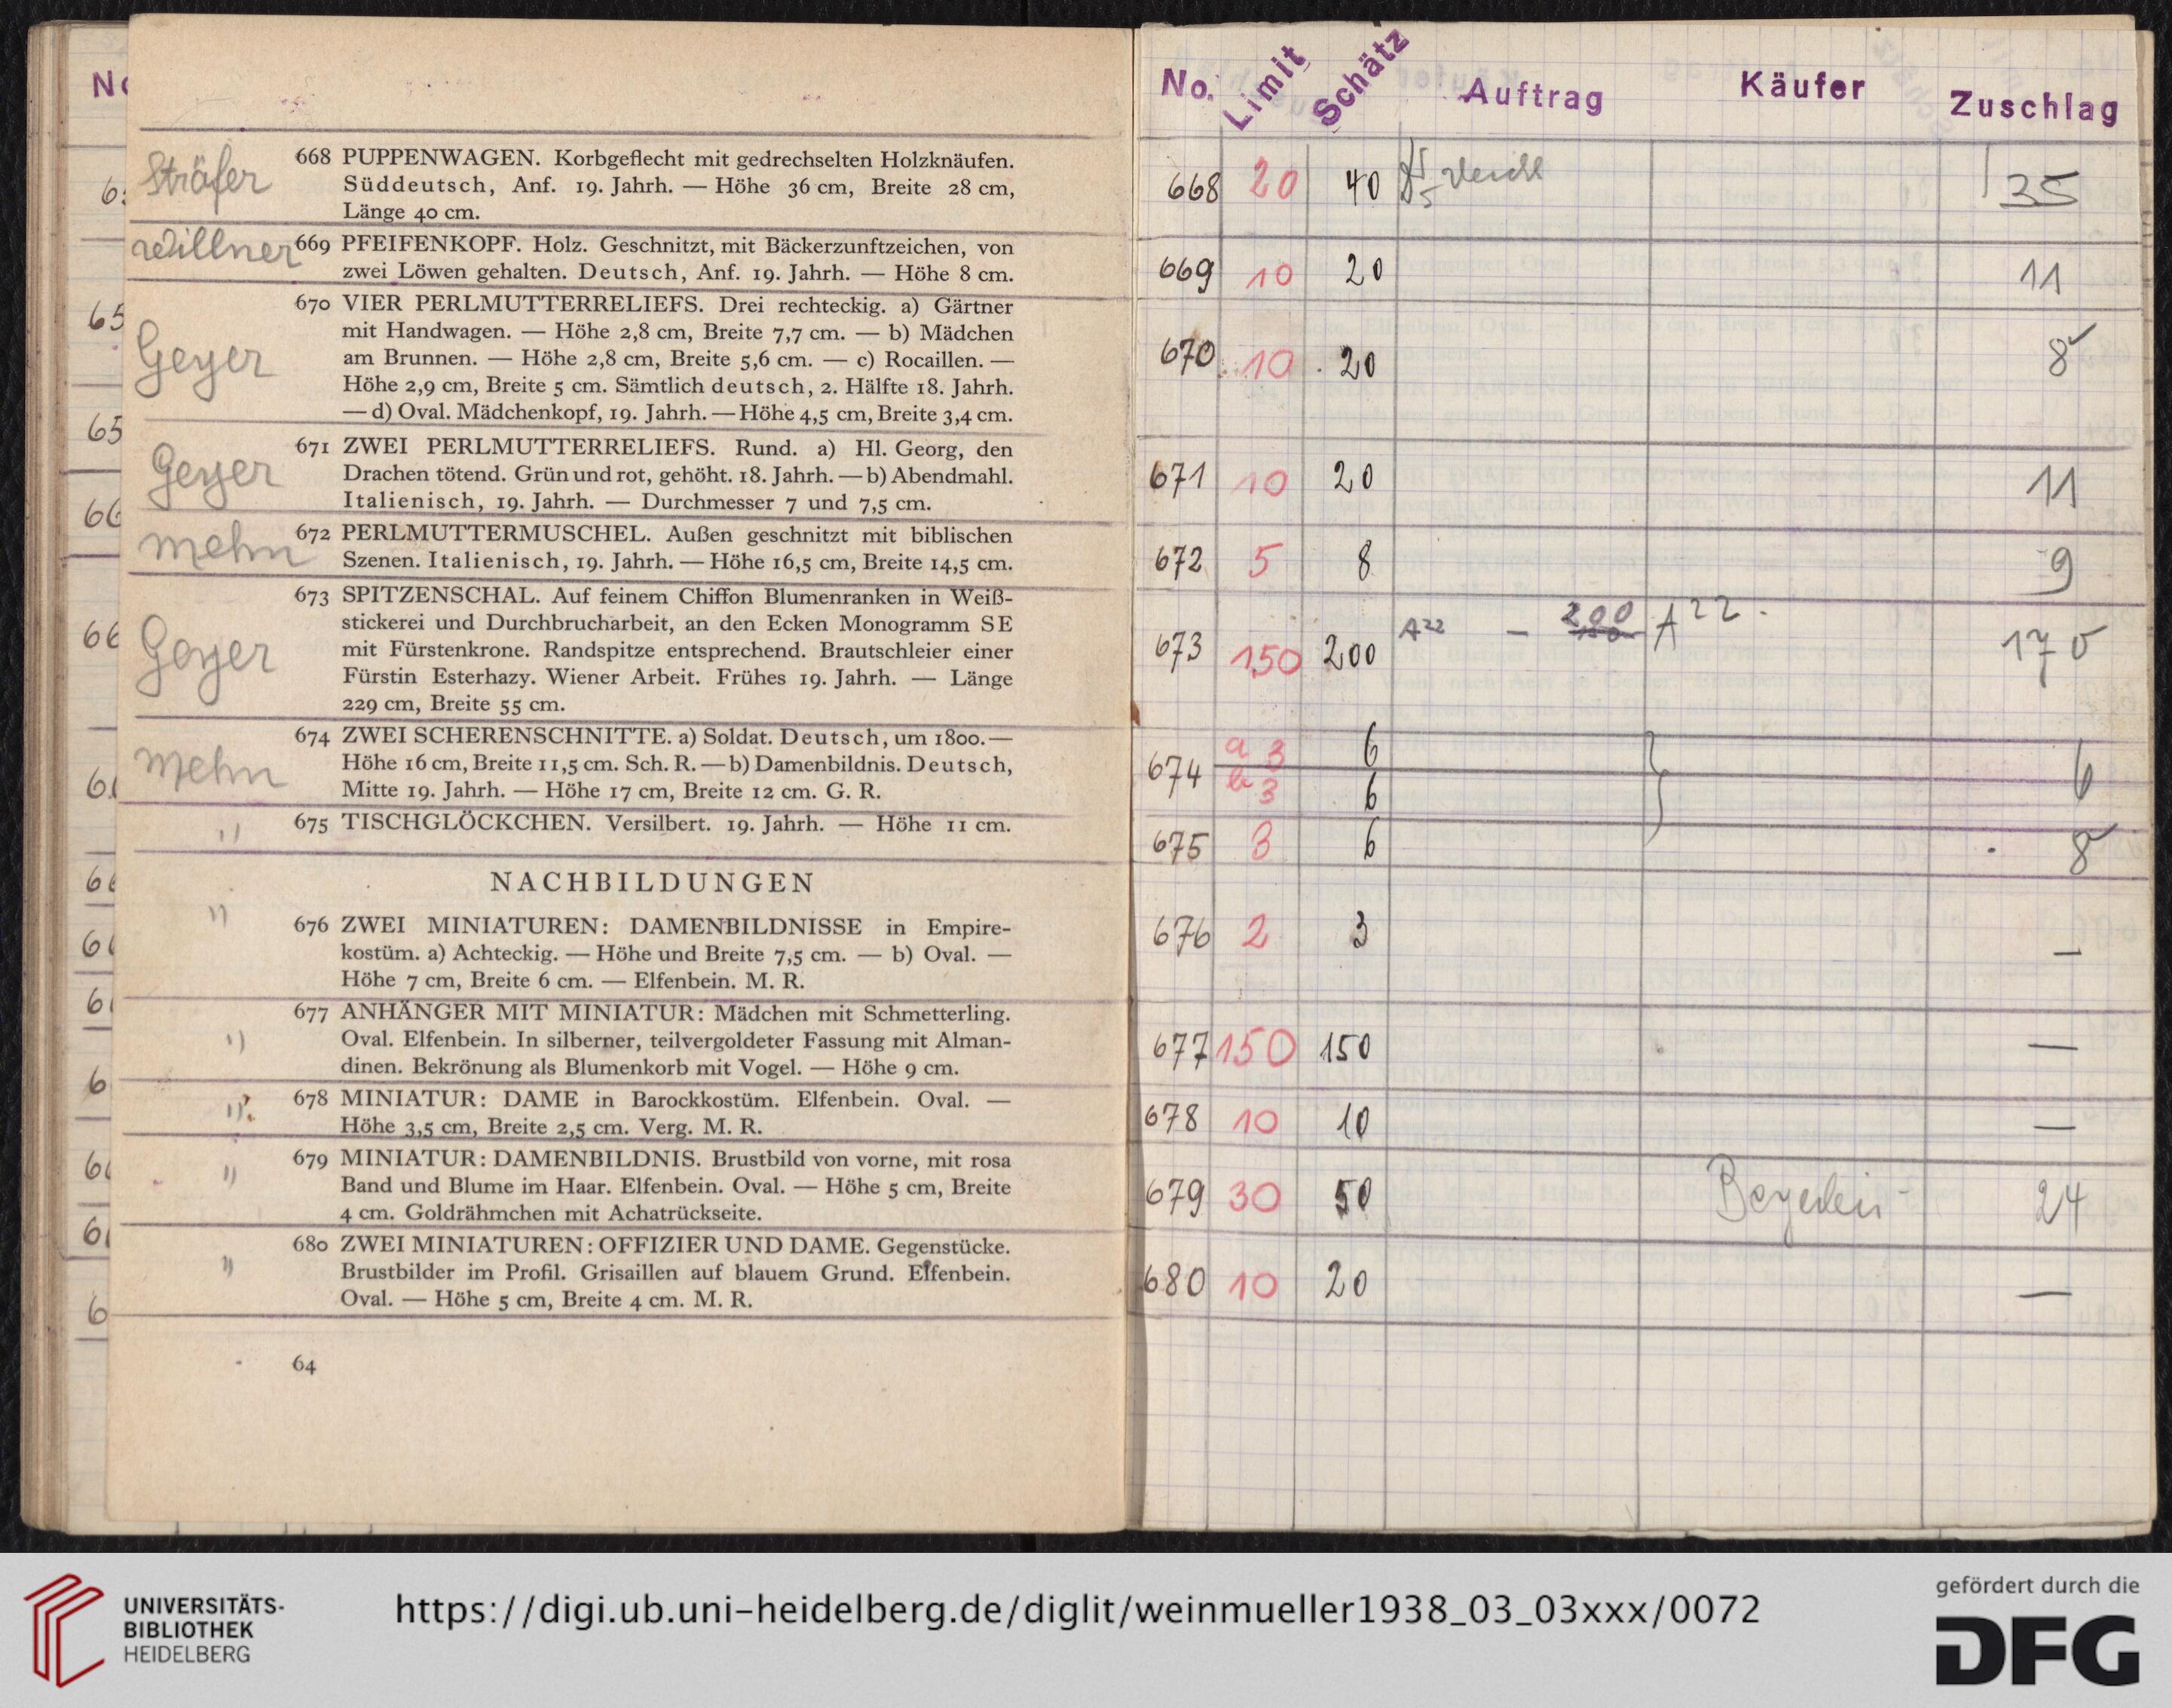 Sträfer
668 PUPPENWAGEN. Korbgeflecht mit gedrechselten Holzknäufen.
Süddeutsch, Anf. 19. Jahrh. — Höhe 36 cm, Breite 28 cm,
Länge 40 cm.
Willner
669 PFEIFENKOPF. Holz. Geschnitzt, mit Bäckerzunftzeichen, von
zwei Löwen gehalten. Deutsch, Anf. 19. Jahrh. — Höhe 8 cm.
Geyer
670 VIER PERLMUTTERRELIEFS. Drei rechteckig. a) Gärtner
mit Handwagen. — Höhe 2,8 cm, Breite 7,7 cm. — b) Mädchen
am Brunnen. — Höhe 2,8 cm, Breite 5,6 cm. — c) Rocaillen. —
Höhe 2,9 cm, Breite 5 cm. Sämtlich deutsch, 2. Hälfte 18. Jahrh.
— d) Oval. Mädchenkopf, 19. Jahrh. — Höhe 4,5 cm, Breite 3,4 cm.
Geyer
671 ZWEI PERLMUTTERRELIEFS. Rund. a) Hl. Georg, den
Drachen tötend. Grün und rot, gehöht. 18. Jahrh. — b) Abendmahl.
Italienisch, 19. Jahrh. — Durchmesser 7 und 7,5 cm.
Mehn
672 PERLMUTTERMUSCHEL. Außen geschnitzt mit biblischen
Szenen. Italienisch, 19. Jahrh. — Höhe 16,5 cm, Breite 14,5 cm.
Geyer
673 SPITZENSCHAL. Auf feinem Chiffon Blumenranken in Weiß-
stickerei und Durchbrucharbeit, an den Ecken Monogramm SE
mit Fürstenkrone. Randspitze entsprechend. Brautschleier einer
Fürstin Esterhazy. Wiener Arbeit. Frühes 19. Jahrh. — Länge
229 cm, Breite 55 cm.
Mehn
674 ZWEI SCHERENSCHNITTE. a) Soldat. Deutsch, um 1800. —
Höhe 16 cm, Breite 11,5 cm. Sch. R. — b) Damenbildnis. Deutsch,
Mitte 19. Jahrh. — Höhe 17 cm, Breite 12 cm. G. R.
" 675 TISCHGLÖCKCHEN. Versilbert. 19. Jahrh. — Höhe 11 cm.
NACHBILDUNGEN
" 676 ZWEI MINIATUREN: DAMENBILDNISSE in Empire-
kostüm. a) Achteckig. — Höhe und Breite 7,5 cm. — b) Oval. —
Höhe 7 cm, Breite 6 cm. — Elfenbein. M. R.
" 677 ANHÄNGER MIT MINIATUR: Mädchen mit Schmetterling.
Oval. Elfenbein. In silberner, teilvergoldeter Fassung mit Alman-
dinen. Bekrönung als Blumenkorb mit Vogel. — Höhe 9 cm.
" 678 MINIATUR: DAME in Barockkostüm. Elfenbein. Oval. —
Höhe 3,5 cm, Breite 2,5 cm. Verg. M. R.
" 679 MINIATUR: DAMENBILDNIS. Brustbild von vorne, mit rosa
Band und Blume im Haar. Elfenbein. Oval. — Höhe 5 cm, Breite
4 cm. Goldrähmchen mit Achatrückseite.
" 680 ZWEI MINIATUREN: OFFIZIER UND DAME. Gegenstücke.
Brustbilder im Profil. Grisaillen auf blauem Grund. Elfenbein.
Oval. — Höhe 5 cm, Breite 4 cm. M. R.
64
No. Limit Schätz Auftrag Käufer Zuschlag
668 20 40 35
669 10 20 11
670 10 20 8
671 10 20 11
672 5 8 9
673 150 200 A22 — 200 A22 170
674 a 3 6
b 3 6 6
675 3 6 8
676 2 3 —
677 150 150 —
678 10 10 —
679 30 50 24
680 10 20 —
UNIVERSITÄTS-
BIBLIOTHEK
HEIDELBERG
https://digi.ub.uni-heidelberg.de/diglit/weinmueller1938_03_03xxx/0072
gefördert durch die
DFG